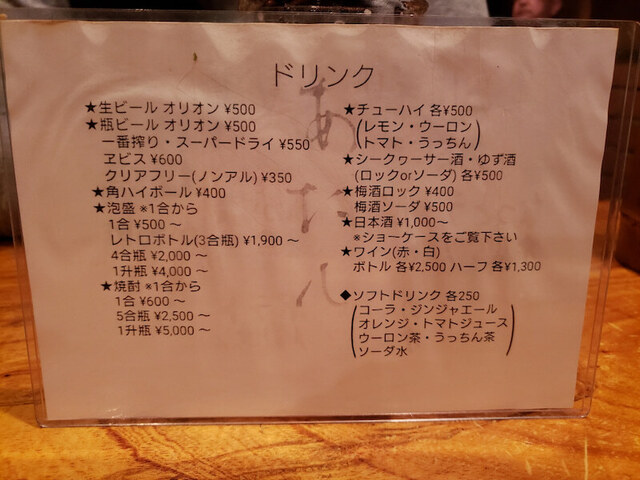 ドリンク
★生ビール オリオン ¥500
★瓶ビール オリオン ¥500
一番搾り・スーパードライ ¥550
ヱビス ¥600
クリアフリー(ノンアル) ¥350
★角ハイボール ¥400
★泡盛 ※1合から
1合 ¥500 ～
レトロボトル(3合瓶) ¥1,900 ～
4合瓶 ¥2,000 ～
1升瓶 ¥4,000 ～
★焼酎 ※1合から
1合 ¥600 ～
5合瓶 ¥2,500 ～
1升瓶 ¥5,000 ～
★チューハイ 各¥500
(レモン・ウーロン
トマト・うっちん)
★シークヮーサー酒・ゆず酒
(ロックorソーダ) 各¥500
★梅酒ロック ¥400
梅酒ソーダ ¥500
★日本酒 ¥1,000～
※ショーケースをご覧下さい
★ワイン(赤・白)
ボトル 各¥2,500 ハーフ 各¥1,300
◆ソフトドリンク 各250
(コーラ・ジンジャエール
オレンジ・トマトジュース
ウーロン茶・うっちん茶
ソーダ水)